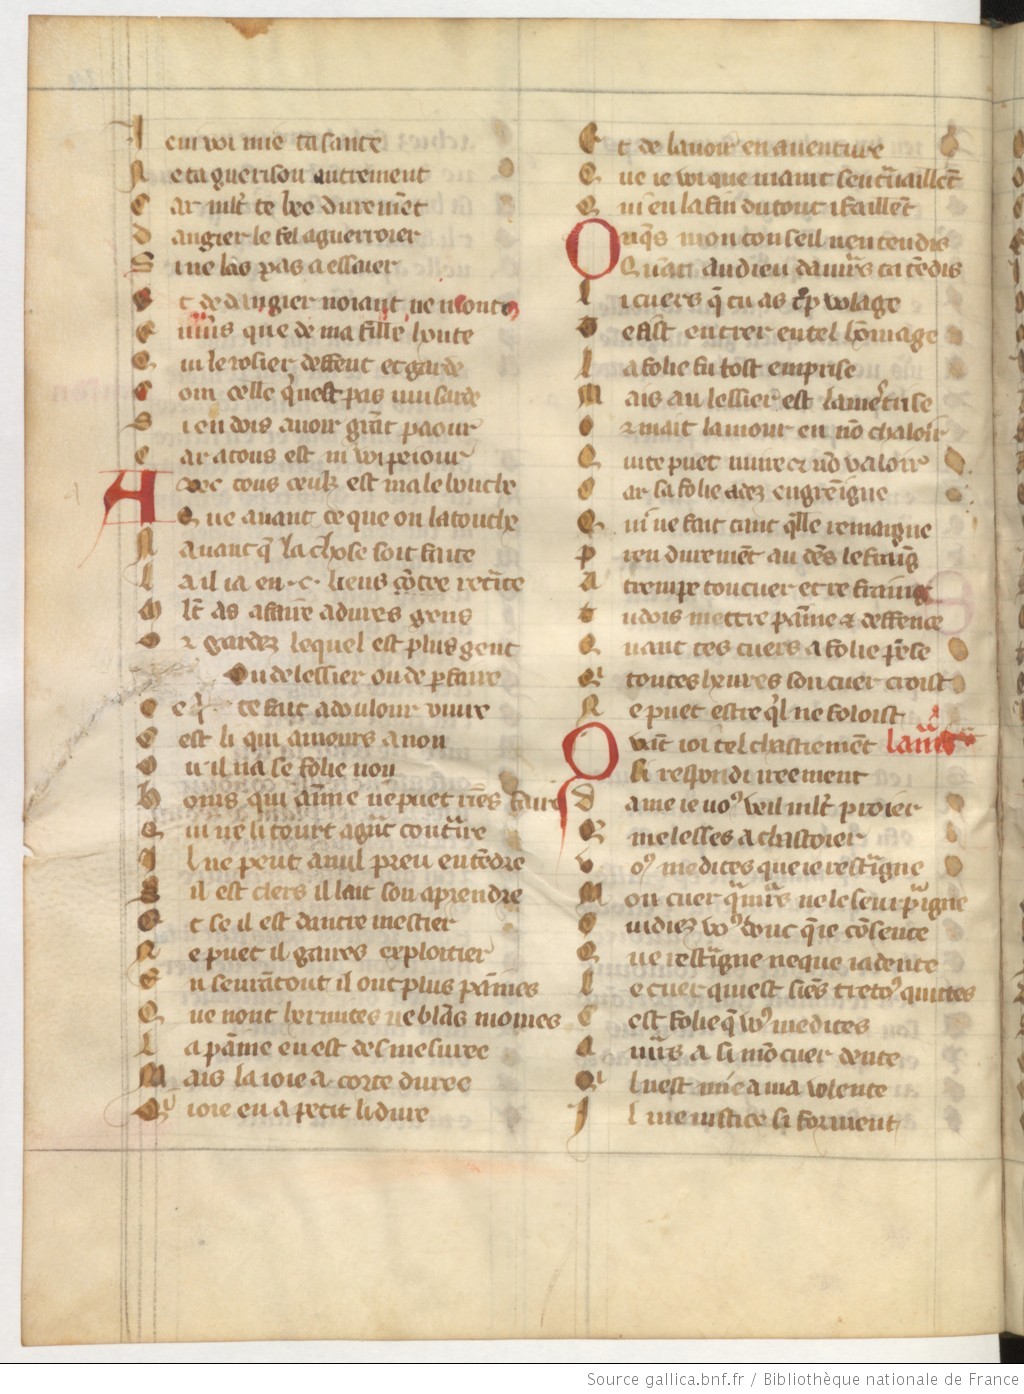 J en voi mie ta sante
N e ta guerison autrement
C ar mlt te bee duremēt
D angier le fel a guerroier
S i ne las pas a essaier
E t de dangier noiant ne monte
E nūs que de ma fille honte
Q ui le rosier deffent et garde
C om celle q̄ nest pas musarde
S i en dois avoir grāt paour
C ar a tous est ni voi peiour
A vec tous ceulz est male bouche
Q ue avant ce que on la touche
A avant q̄ la chose soit faite
L a il ia en .c. lieus cōtre retite
M lt as affaire a dures gens
O r gardez lequel est plus gent
Ou de lessier ou de pfaire
C e q̄ te fait a doulour vivre
C est li qui amours a non
O u il na se folie non
H oms qui aīme ne puet riēs faire
Q ui ne li tourt a grāt contūre
I l ne peut a nul preu entēdre
S il est clers il lait son aprendre
E t se il est dautre mestier
N e puet il gaires exploitier
E n seurātout il ont plus pāines
Q ue nont hermites ne blās moines
L a pāine en est desmesuree
M ais la ioie a corte duree
Q ui ioie en a petit li dure
E t de lavoir en aventure
C ue ie voi que maint sen trāvaillēt
Q ui en la fin du tout i faillēt
O nq̄s mon conseil nen tendis
Q uāt au dieu damūrs ta tēdis
L i cuers q̄ tu as trp volage
T e fist entrer en tel hōmage
L a folie fu tost emprise
M ais au lessier est la mētrise
O r mait lamour en nō chaloir
Q ui te puet nuire et nō valoir
C ar sa folie adez engrēigne
Q ui ne fait tant q̄lle remaigne
P ren duremēt au dēs le fraīg
A trempe ton cuer et re fraing
T u dois mettre pāine et deffence
C uant tes cuers a folie pēse
Q toutes heures son cuer croist
N e puet estre q̄l ne foloist
O vāit ioi cel chastiement lamās
Li respondi ireement
D ame ie vo⁹ veil mlt proier
Q me lesses a chastoier
V o⁹ me dites que ie restraīgne
M on cuer q̄ amūrs ne le seurpraīgne
C uidiez vo⁹ donc q̄ ie cōsente
Q ue restraīgne ne que iadente
L e cuer qui est siēs tretō⁹ quittes
C est folie q̄ vo⁹ me dites
A mūrs a si mō cuer dente
Q l nest mie a ma volente
J l me iustice si forment
Source gallica.bnf.fr / Bibliothèque nationale de France